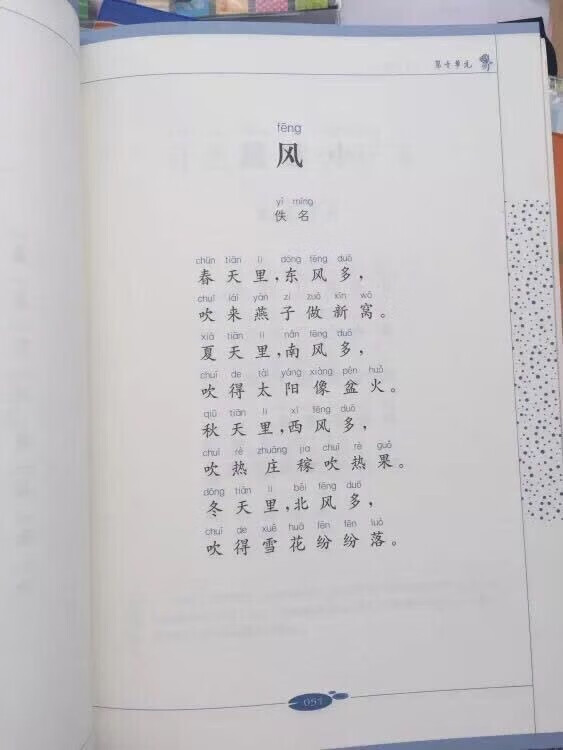 fēng
风
yì míng
佚名
chūn tiān lǐ dōng fēng duō
春天里,东风多,
chuī lái yàn zi zuò xīn wō
吹来燕子做新窝。
xià tiān lǐ nán fēng duō
夏天里,南风多,
chuī de tài yáng xiàng pén huǒ
吹得太阳像盆火。
qiū tiān lǐ xī fēng duō
秋天里,西风多,
chuī rè zhuāng jia chuī rè guǒ
吹热庄稼吹热果。
dōng tiān lǐ běi fēng duō
冬天里,北风多,
chuī de xuě huā fēn fēn luò
吹得雪花纷纷落。